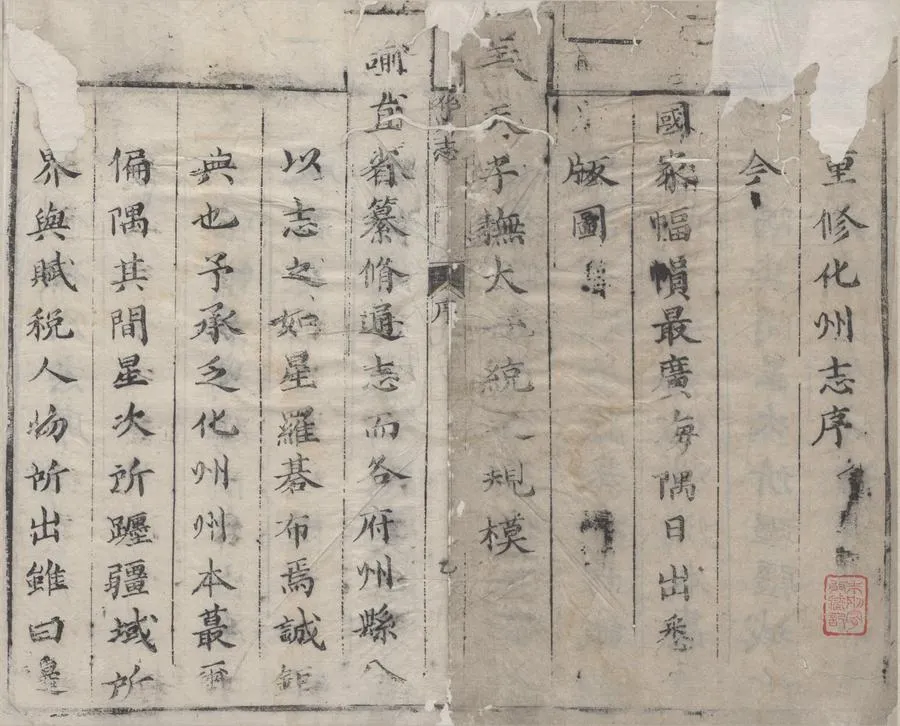 重修化州志序
今
國家幅幀最廣海隅日出悉
版圖
天子撫大統規模
喻直省纂脩通志而各府州縣
以志之如星羅碁布焉誠鉅
典也予承乏化州州本蕞爾
偏隅其間星次所躔疆域所
界與賦稅人物所出雖曰邊
化州志
序